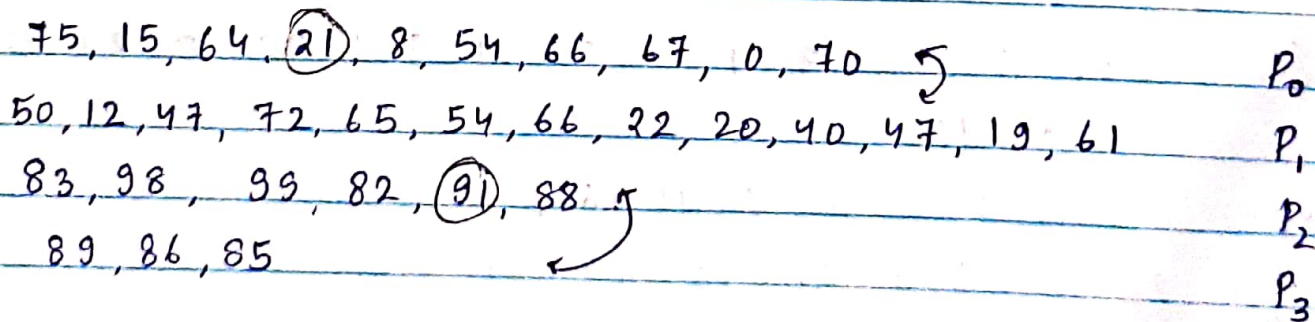 75, 15, 64, 21, 8, 54, 66, 67, 0, 70 P0
50, 12, 47, 72, 65, 54, 66, 22, 20, 40, 47, 19, 61 P1
83, 98, 99, 82, 91, 88 P2
89, 86, 85 P3